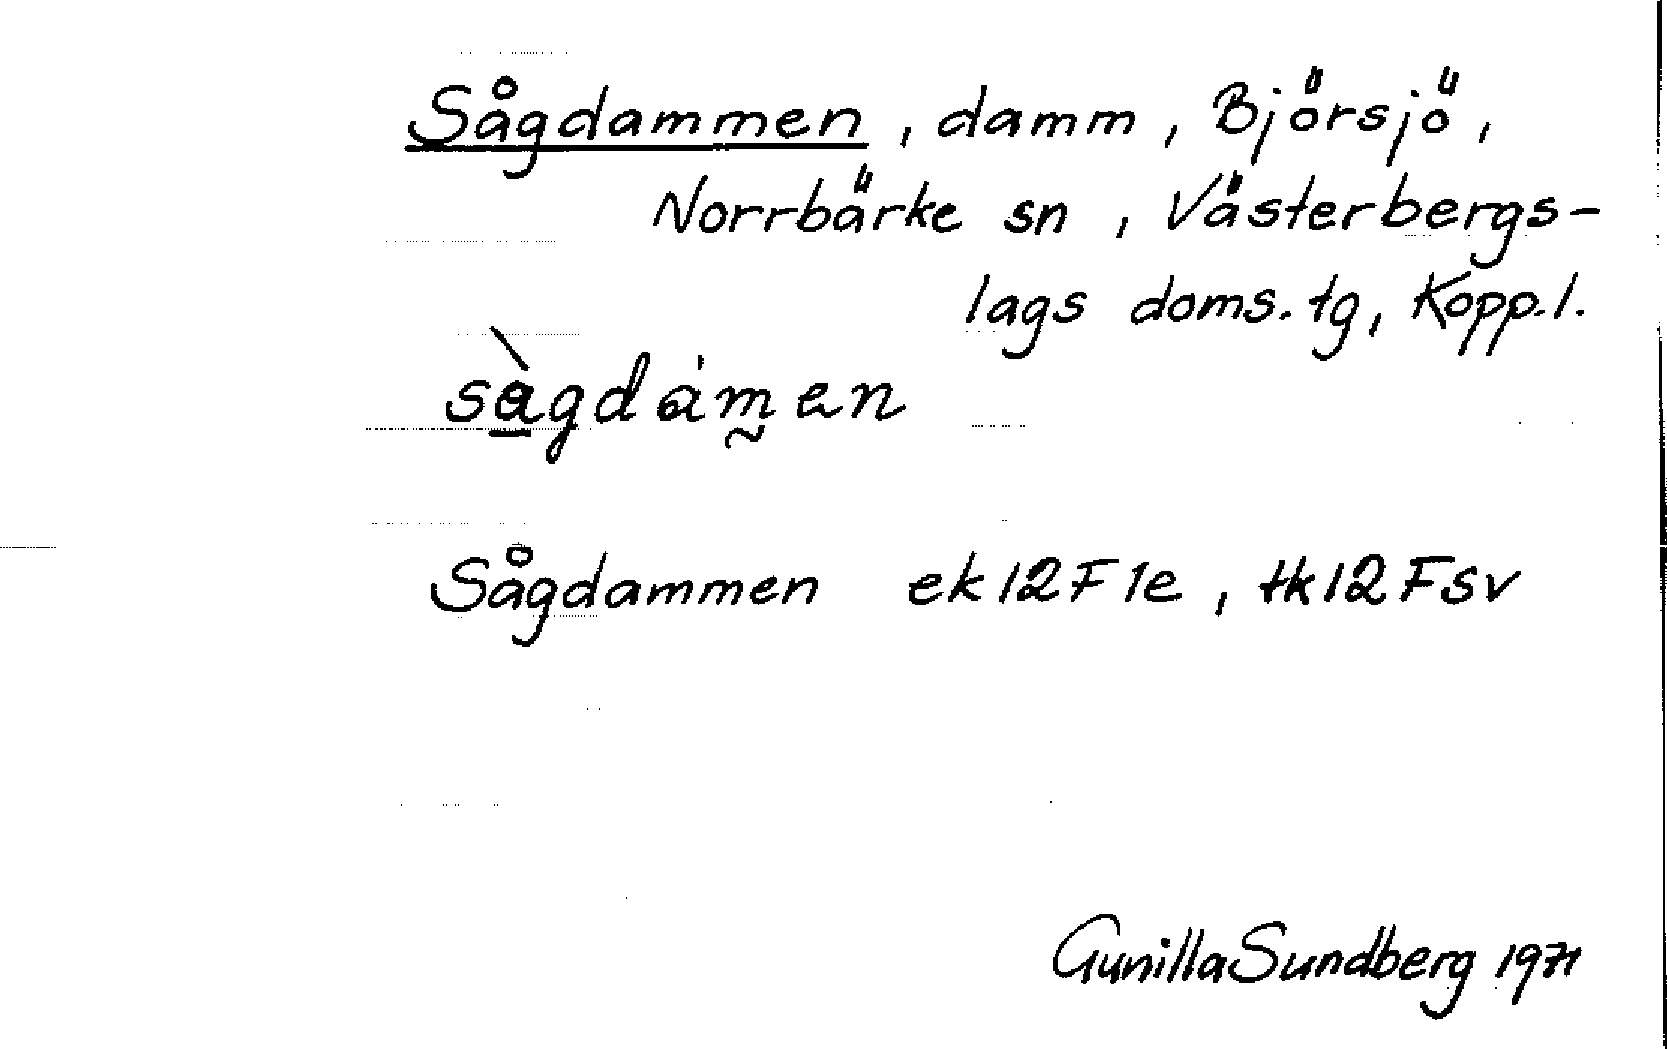 Sågdammen, damm, Björsjö,
Norrbärke sn, Västerbergs-
lags doms. tg, Kopp. l.
sàgdȧm̰en
Sågdammen ek12F1e, tk12Fsv
Gunilla Sundberg 1971